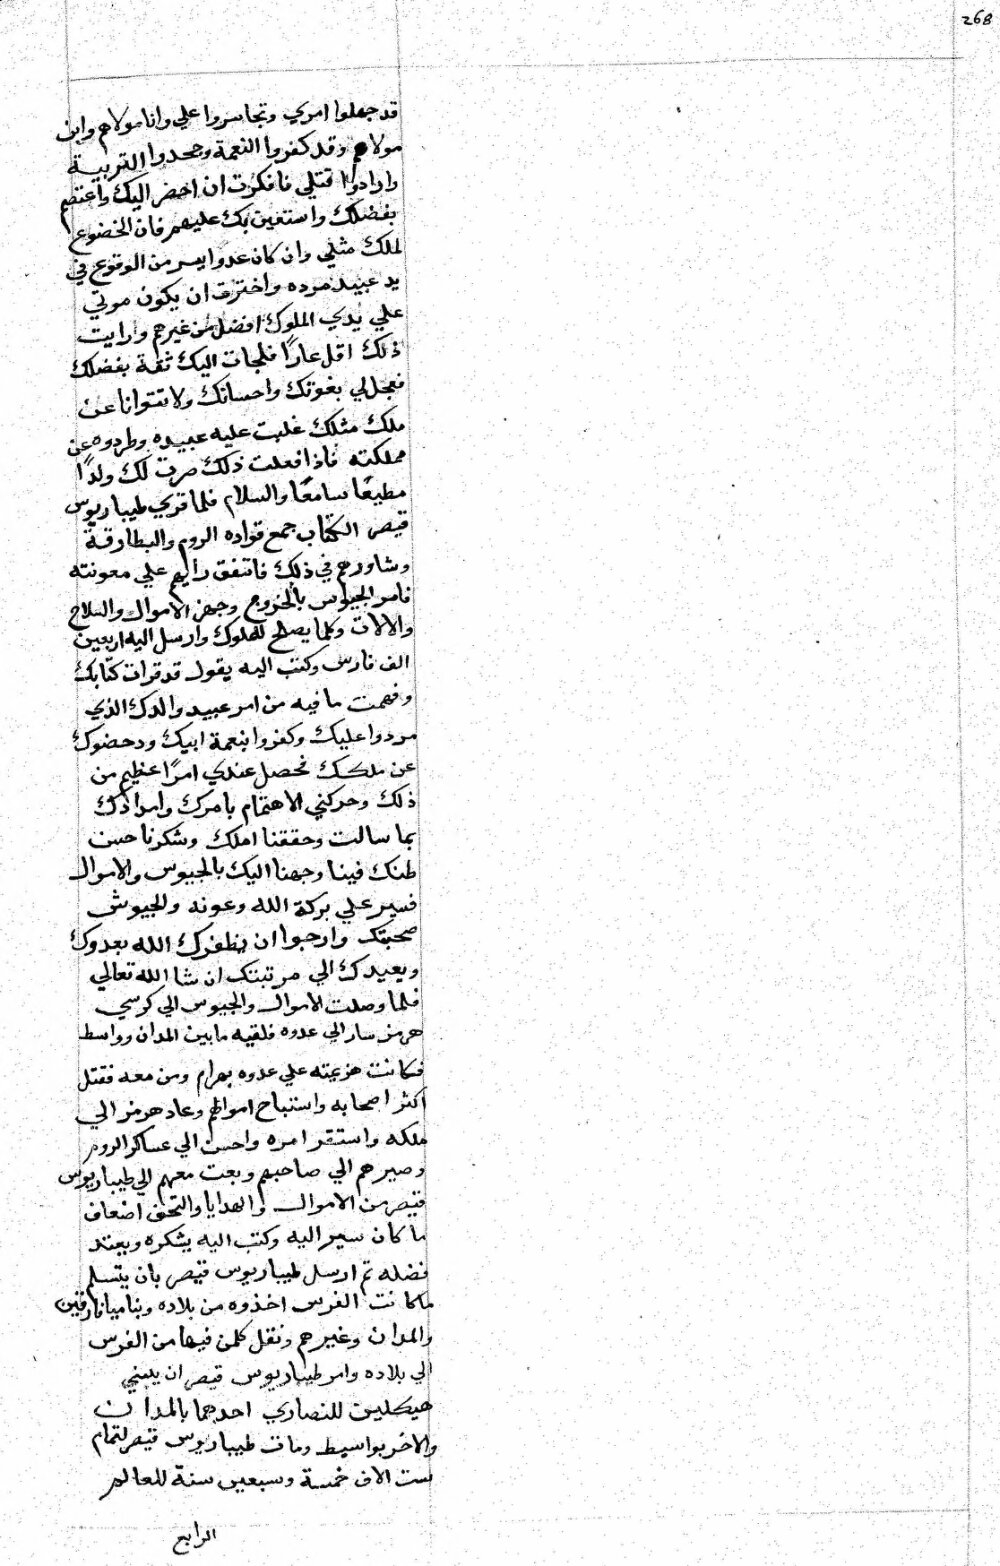 268
قد جهلوا امري وتجاسروا علي وانا مولاهم وابن
مولاهم وقد كفروا النعمة وجحدوا التربية
وارادوا قتلي فافكرت ان احضر اليك واعتصم
بفضلك واستعين بك عليهم فان الخضوع
لملك مثلي وان كان عدوا ايسر من الوقوع في
يد عبيد مرده واخترت ان يكون موتي
علي يدي الملوك افضل من غيرهم ورايت
ذلك اقل عارًا فلجات اليك ثقة بفضلك
فعجل لي بغوثك واحسانك ولا تتوانا عن
ملك مثلك غلبت عليه عبيده وطردوه عن
مملكته فاذا فعلت ذلك صرت لك ولدًا
مطيعًا سامعًا والسلام فلما قري طيباريوس
قيصر الكتاب جمع قواده الروم والبطارقة
وشاورهم في ذلك فاتفق رايهم علي معونته
فامر الجيوس بالخروج وجهز الاموال والسلاح
والالات وكلما يصلح للملوك وارسل اليه اربعين
الف فارس وكتب اليه يقول قد قرات كتابك
وفهمت ما فيه من امر عبيد والدك الذي
مردوا عليك وكفروا بنعمة ابيك ودحضوك
عن ملكك فحصل عندي امرًا عظيم من
ذلك وحركني الاهتمام بامرك وامدادك
بما سالت وحققنا املك وشكرنا حسن
ظنك فينا وجهنا اليك بالجيوس والاموال
فسير علي بركة الله وعونه والجيوش
صحبتك وارجوا ان يظفرك الله بعدوك
ويعيدك الي مرتبتك ان شا الله تعالي
فلما وصلت الاموال والجيوس الي كرسي
هرمز سار الي عدوه فلقيه ما بين المدان وواسط
فكانت هزيمته علي عدوه بهرام ومن معه فقتل
اكثر اصحابه واستباح اموالهم وعاد هرمز الي
ملكه واستقر امره واحسن الي عساكر الروم
وصيرهم الي صاحبهم وبعت معهم الي طيباريوس
قيصر من الاموال والهدايا والتحف اضعاف
ما كان سير اليه وكتب اليه يشكره ويعتد
فضله تم ارسل طيباريوس قيصر بان يتسلم
ماكانت الفرس اخذوه من بلاده وبنا ميافارقين
والمدان وغيرهم ونقل كلمن فيها من الفرس
الي بلاده وامر طيباريوس قيصر ان يبني
هيكلين للنصاري احدهما بالمدان
والاخر بواسيط ومات طيباريوس قيصر لتمام
ست الاف خمسة وسبعين سنة للعالم
الرابع